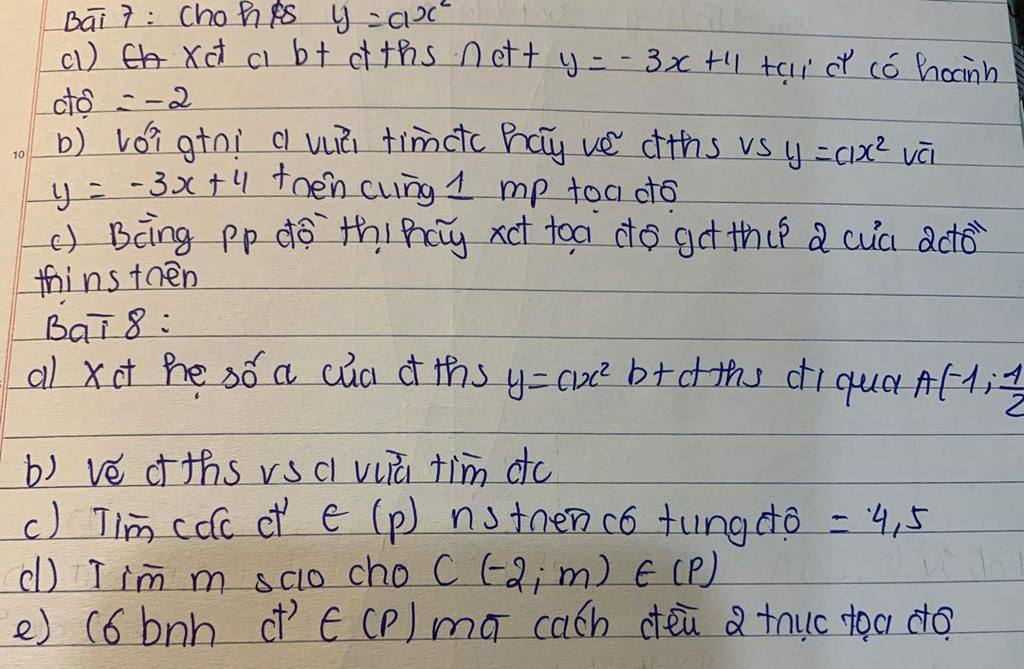 Bài 7: Cho hs y = ax²
a) xđ a bt đths n ct t y = -3x + 4 tại đ' có hoành
độ = -2
b) Với gtrị a vừa tìm đc hãy vẽ đths vs y = ax² và
y = -3x + 4 trên cùng 1 mp tọa độ
c) Bằng pp đồ thị hãy xđ tọa độ gđ thứ 2 của 2 đồ
thị ns trên
Bài 8:
a) Xđ hệ số a của đths y = ax² bt đths đi qua A(-1; 1/2
b) Vẽ đths vs a vừa tìm đc
c) Tìm các đ' ∈ (P) ns trên có tung độ = 4,5
d) Tìm m sao cho C (-2; m) ∈ (P)
e) Có bnh đ' ∈ (P) mà cách đều 2 trục tọa độ
10